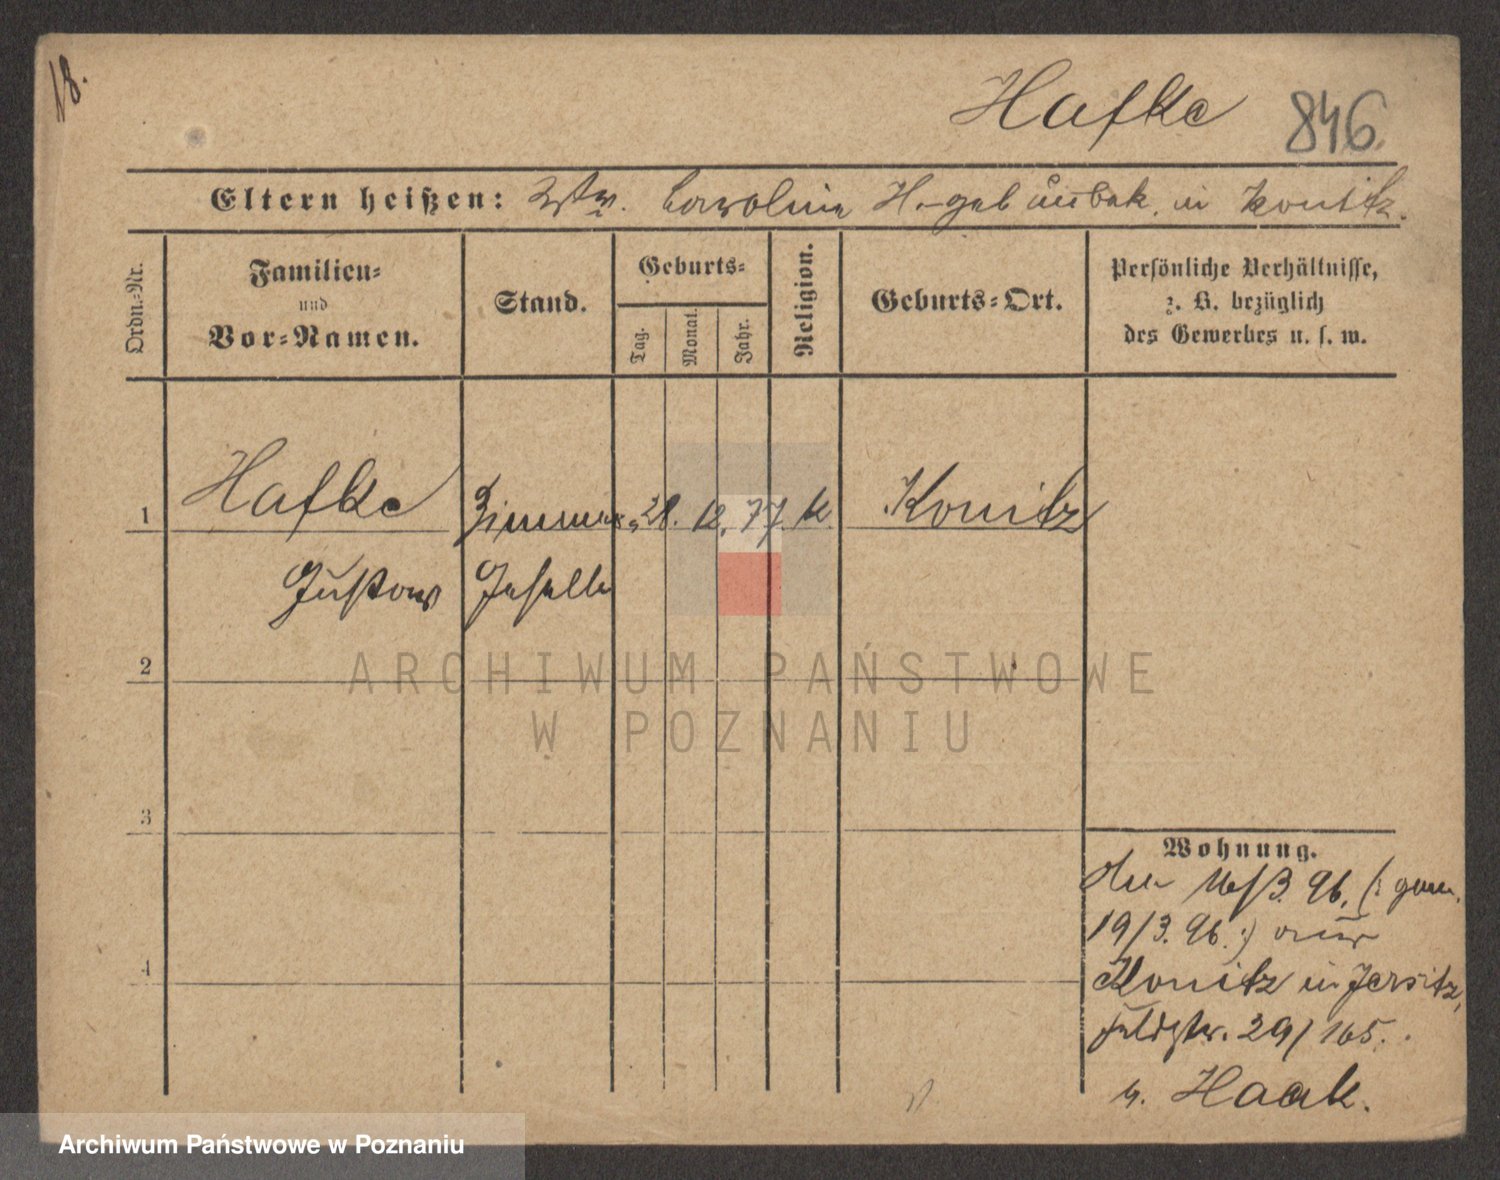 18.
Hafke 846.
Eltern heißen: Wtw. Caroline H. geb in Konitz.
Ordn.-Nr.
Familien-
und
Vor-Namen.
Stand.
Geburts-
Tag. Monat. Jahr.
Religion.
Geburts-Ort.
Persönliche Verhältnisse,
z. B. bezüglich
des Gewerbes u. s. w.
1 Hafke Zimmer- 28. 12. 77. k Konitz
Gustav Geselle
2
ARCHIWUM PAŃSTWOWE
W POZNANIU
3
Wohnung.
16/3. 96. (: gem.
19/3. 96. :) aus
4
Konitz in Jersitz,
Feldstr. 29/165.
b. Haak.
Archiwum Państwowe w Poznaniu